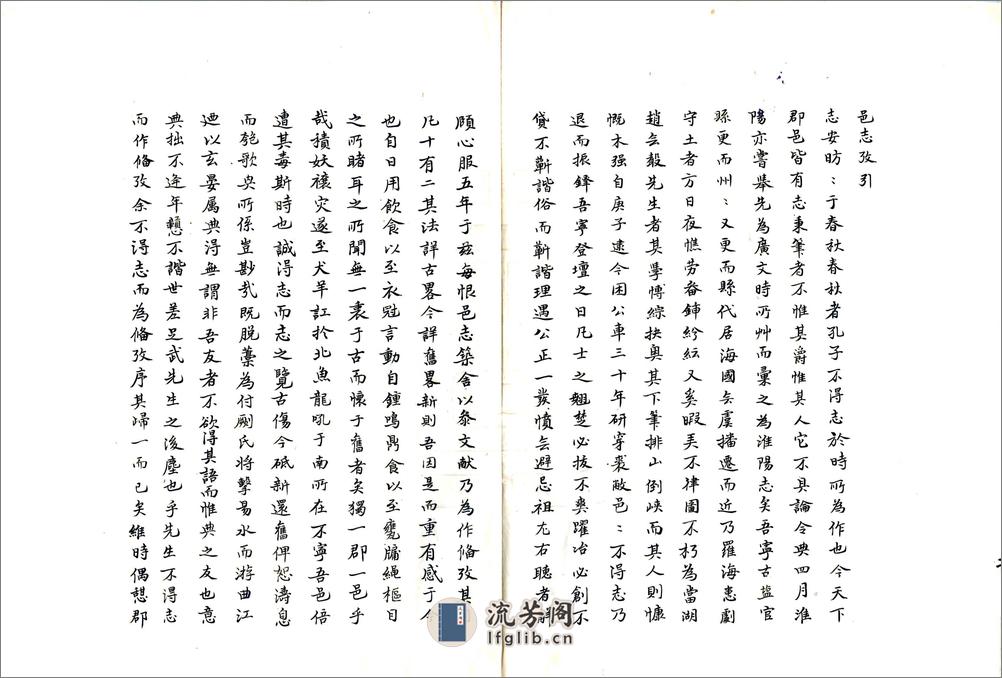 邑志攷引
志安昉:于春秋春秋者孔子不得志於時所為作也今天下
郡邑皆有志秉筆者不惟其爵惟其人它不具論令典四月淮
陽亦嘗舉先為廣文時所艸而彙之為淮陽志矣吾寧古鹽官
縣更而州:又更而縣代居海國矣虞播遷而近乃羅海患劇
守土者方日夜憔劳畚鍤紛紜又奚暇弄不律圖不朽為當湖
趙无殽先生者其學博綜抉奥其下筆排山倒峡而其人則慷
慨木强自庚子逮今困公車三十年研穿裘敝邑:不得志乃
退而振鐸吾寧登壇之日凡士之翹楚必拔不爽躍冶必創不
貸不靳諧俗而靳諧理遇公正一發憤无避忌祖左右聽者解
頤心服五年于茲每恨邑志築舍以忝文献乃為作脩攷其
凡十有二其法詳古畧今詳舊畧新則吾因是而重有感于今
也自日用飲食以至衣冠言動自鍾鳴鼎食以至甕牖繩樞目
之所睹耳之所聞無一裏于古而懷于舊者矣獨一郡一邑乎
哉積妖禳灾遂至犬羊訌於北魚龍吼于南所在不寧吾邑倍
遭其毒斯時也誠得志而志之覽古傷今砥新還舊俾恕濤息
而匏歌與所係豈尠哉既脱藁為付劂氏將擊易水而游曲江
迺以玄晏屬典得無謂非吾友者不欲得其語而惟典之友也意
典拙不逢年戇不諧世差足武先生之後塵也乎先生不得志
而作脩攷余不得志而為脩攷序其歸一而已矣維時偶憩郡
流芳阁
lfglib.cn